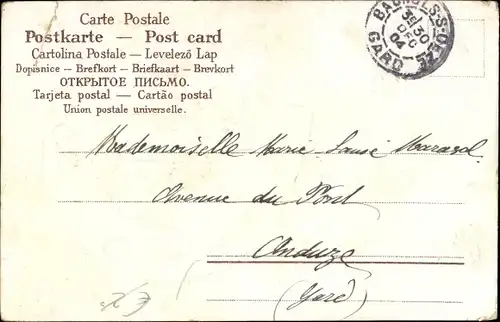 Carte Postale
Postkarte — Post card
Cartolina Postale — Levelező Lap
Dopisnice — Brefkort — Briefkaart — Brevkort
ОТКРЫТОЕ ПИСЬМО.
Tarjeta postal — Cartão postal
Union postale universelle.
30
DEC
04
GARD
Mademoiselle Marie Louise
Avenue du Pont
Anduze
(Gard)